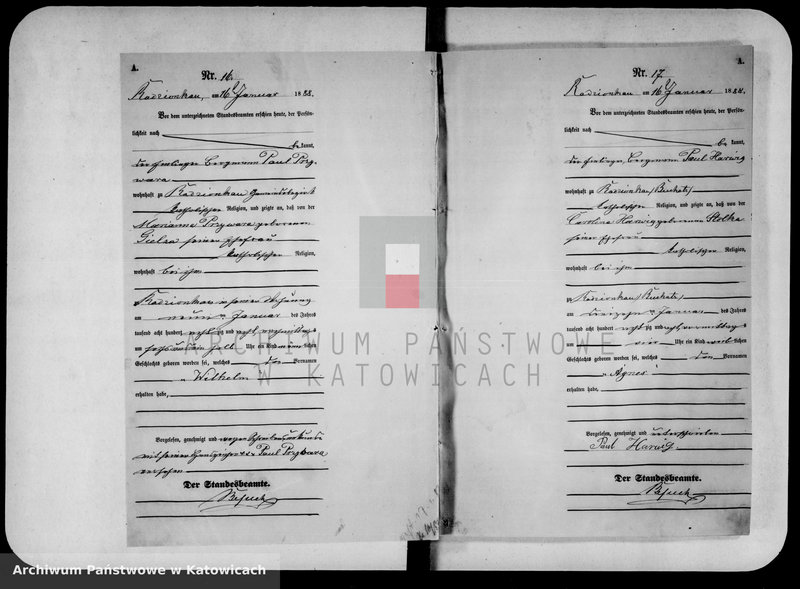 A.
Nr. 16.
Radzionkau, am 16 Januar 1888.
Vor dem unterzeichneten Standesbeamten erschien heute, der Persön-
lichkeit nach
be kannt,
der Bergmann Paul Przy-
wara
wohnhaft zu Radzionkau Gemeindebezirk
katholischer Religion, und zeigte an, daß von der
Marianna Przywara geborenen
seiner Ehefrau
katholischer Religion,
wohnhaft bei ihm
zu Radzionkau in seiner Wohnung
am neun ten Januar des Jahres
tausend acht hundert achtzig und acht, nachmittags
um sechs und ein halb Uhr ein Kind männlichen
Geschlechts geboren worden sei, welches den Vornamen
Wilhelm
erhalten habe,
Vorgelesen, genehmigt und wegen Schreibensunkunde
mit seinem Handzeichen +++ Paul Przywara
versehen
Der Standesbeamte.
A.
Nr. 17
Radzionkau, am 16 Januar 1888.
Vor dem unterzeichneten Standesbeamten erschien heute, der Persön-
lichkeit nach
be kannt,
der Bergmann Paul Harwig
wohnhaft zu Radzionkau
katholischer Religion, und zeigte an, daß von der
Carolina Harwig geborenen Stolka
seiner Ehefrau
katholischer Religion,
wohnhaft bei ihm
zu Radzionkau
am ten Januar des Jahres
tausend acht hundert achtzig und acht, vormittags
um vier Uhr ein Kind weiblichen
Geschlechts geboren worden sei, welches den Vornamen
Agnes
erhalten habe,
Vorgelesen, genehmigt und unterschrieben
Paul Harwig.
Der Standesbeamte.
ARCHIWUM PAŃSTWOWE
W KATOWICACH
Archiwum Państwowe w Katowicach